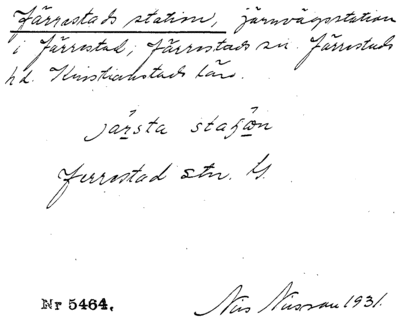 Järrestads station, järnvägsstation
i Järrestad, Järrestads sn. Järrestads
hd. Kristianstads län.
järsta staʃon
Jerrestad stn. G.
Nr 5464. Nils Nilsson 1931.